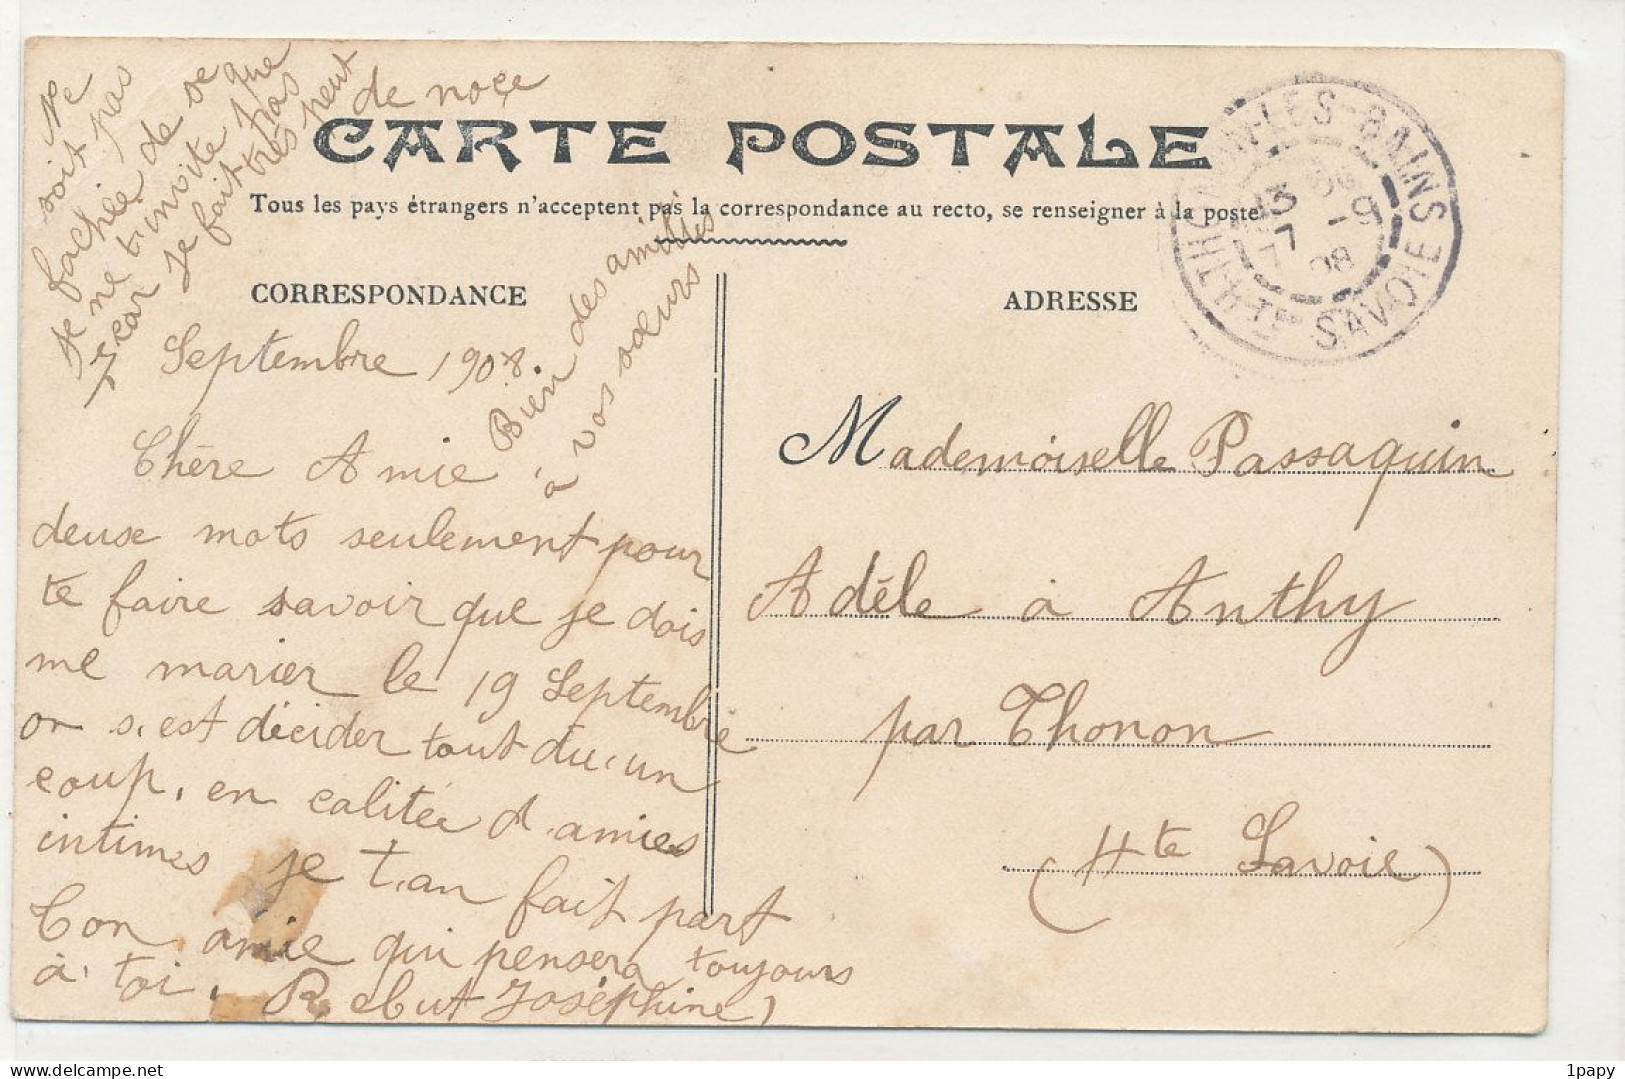 Ne
soit pas
fachée de se
je ne t'invite que
car je fait pas
très peut
de noçe
CARTE POSTALE
Tous les pays étrangers n'acceptent pas la correspondance au recto, se renseigner à la poste
CORRESPONDANCE
7 Septembre 1908.
Bien des amitiés
à vos sœurs
Chère Amie
deuse mots seulement pour
te faire savoir que je dois
me marier le 19 Septembre
on s'est décider tout du'un
coup, en calitée d'amies
intimes je t'an fait part
Ton amie qui pensera toujours
à toi. Rebut Joséphine)
ADRESSE
THONON-LES-BAINS
HTE SAVOIE
13
7 -9
08
Mademoiselle Passaquin
Adèle à Anthy
par Thonon
(Hte Savoie)
1papy